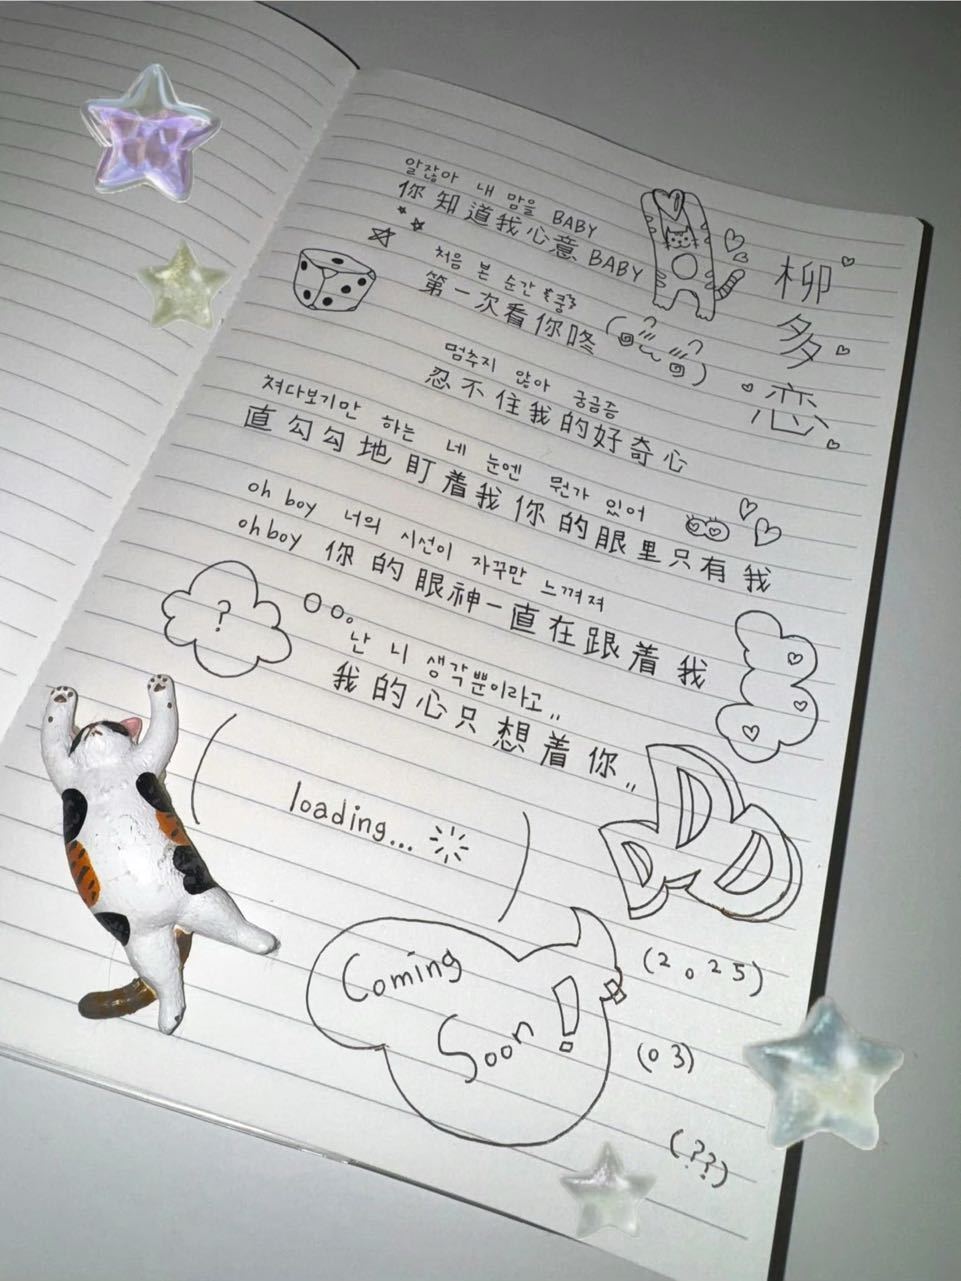 알잖아 내 맘을 BABY
你知道我心意 BABY
처음 본 순간 쿵
第一次看你咚
멈추지 않아 궁금증
忍不住我的好奇心
쳐다보기만 하는 네 눈엔 뭔가 있어
直勾勾地盯着我你的眼里只有我
oh boy 너의 시선이 자꾸만 느껴져
oh boy 你的眼神一直在跟着我
난 니 생각뿐이라고,,
我的心只想着你,,
柳多恋
?
loading...
Coming
Soon!
(2025)
(03)
(??)